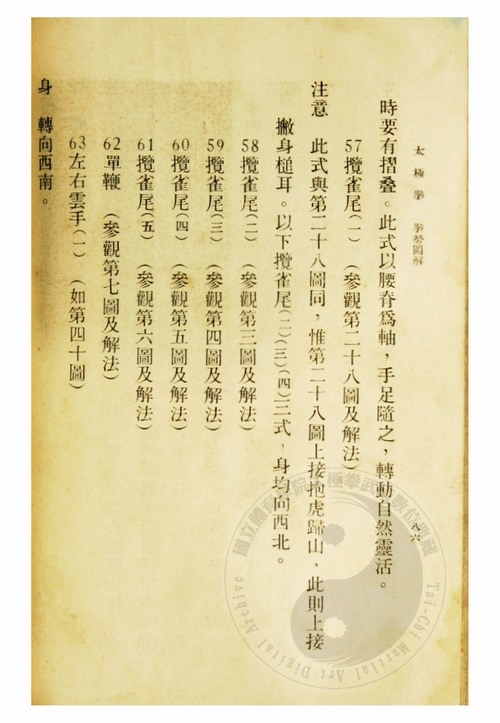 太極拳　拳勢圖解
八六
時要有摺叠。此式以腰脊爲軸，手足隨之，轉動自然靈活。
57攬雀尾(一)　(參觀第二十八圖及解法)
注意　此式與第二十八圖同，惟第二十八圖上接抱虎歸山，此則上接
撇身槌耳。以下攬雀尾(二)(三)(四)三式，身均向西北。
58攬雀尾(二)　(參觀第三圖及解法)
59攬雀尾(三)　(參觀第四圖及解法)
60攬雀尾(四)　(參觀第五圖及解法)
61攬雀尾(五)　(參觀第六圖及解法)
62單鞭　(參觀第七圖及解法)
63左右雲手(一)　(如第四十圖)
身　轉向西南。
Tai-Chi Martial Art Digital Archive